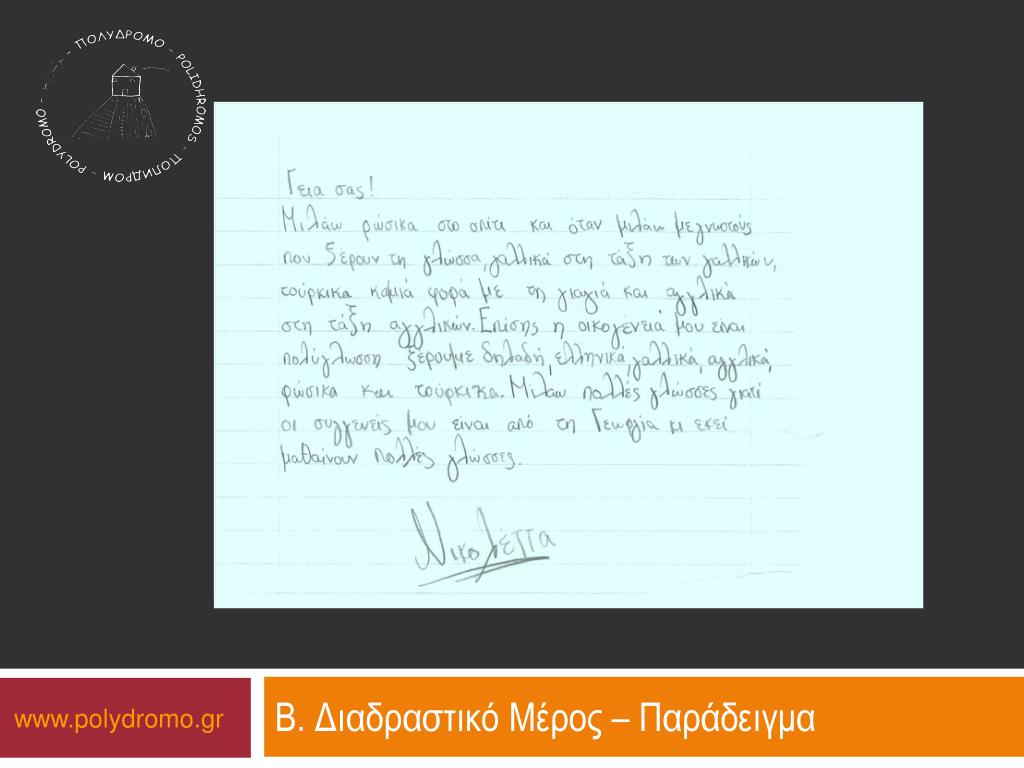 ΠΟΛΥΔΡΟΜΟ - POLIDHROMOS - ПОЛИДРОМ - POLYDROMO -
Γεια σας!
Μιλάω ρώσικα στο σπίτι και όταν μιλάω με γνωστούς
που ξέρουν τη γλώσσα, γαλλικά στη τάξη των γαλλικών,
τούρκικα καμιά φορά με τη γιαγιά και αγγλικά
στη τάξη αγγλικών. Επίσης η οικογένειά μου είναι
πολύγλωσση ξέρουμε δηλαδή, ελληνικά, γαλλικά, αγγλικά,
ρώσικα και τούρκικα. Μιλάω πολλές γλώσσες γιατί
οι συγγενείς μου είναι από τη Γεωργία κι εκεί
μαθαίνουν πολλές γλώσσες.
Νικολέττα
www.polydromo.gr
Β. Διαδραστικό Μέρος – Παράδειγμα